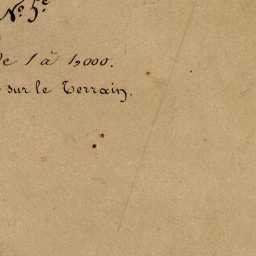 Nº 5e
de 1 à 1,000.
sur le Terrain.